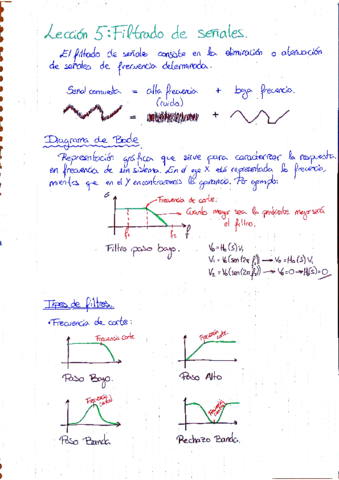 Lección 5: Filtrado de señales.
El filtado de señales consiste en la eliminación o atenuación
de señales de frecuencia determinada.
Señal con ruido = alta frecuencia + baja frecuencia.
(ruido)
+
Diagrama de Bode
Representación gráfica que sirve para caracterizar la respuesta
en frecuencia de un sistema. En el eje X está representada la frecuencia,
mientras que en el Y encontraremos la ganancia. Por ejemplo:
G
Frecuencia de corte.
Cuanto mayor sea la pendiente mejor será
el filtro.
f1 f2 f
Filtro paso bajo.
V0 = H0(S)Vi
Tipos de filtros.
• Frecuencia de corte:
Frecuencia corte
Frecuencia corte.
Paso Bajo.
Paso Alto
Frecuencia central
Frecuencia central
Paso Banda
Rechazo Banda.